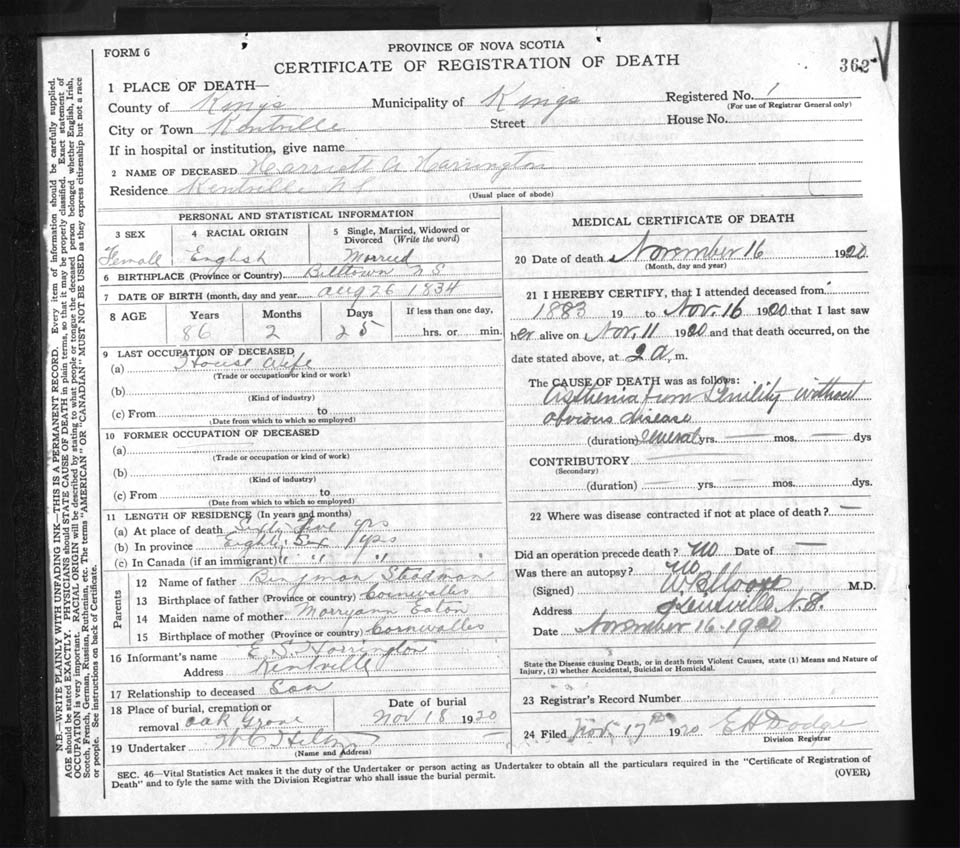 FORM 6
PROVINCE OF NOVA SCOTIA
CERTIFICATE OF REGISTRATION OF DEATH
362
1 PLACE OF DEATH—
County of Kings Municipality of Kings Registered No.
(For use of Registrar General only)
City or Town Kentville Street House No.
If in hospital or institution, give name
2 NAME OF DECEASED Harriett A Harrington
Residence Kentville N.S.
(Usual place of abode)
PERSONAL AND STATISTICAL INFORMATION
3 SEX
Female
4 RACIAL ORIGIN
English
5 Single, Married, Widowed or Divorced (Write the word)
Married
6 BIRTHPLACE (Province or Country) Billtown N S
7 DATE OF BIRTH (month, day and year) Aug 26 1834
8 AGE Years Months Days If less than one day,
86 2 25 hrs. or min.
9 LAST OCCUPATION OF DECEASED
(a) House Wife
(Trade or occupation or kind or work)
(b)
(Kind of industry)
(c) From to
(Date from which to which so employed)
10 FORMER OCCUPATION OF DECEASED
(a)
(Trade or occupation or kind of work)
(b)
(Kind of industry)
(c) From to
(Date from which to which so employed)
11 LENGTH OF RESIDENCE (In years and months)
(a) At place of death Sixty Five yrs
(b) In province Eighty Six yrs
(c) In Canada (if an immigrant) " " " "
Parents
12 Name of father Benjman Steadman
13 Birthplace of father (Province or country) Cornwallis
14 Maiden name of mother Marryann Eaton
15 Birthplace of mother (Province or country) Cornwallis
16 Informant's name E. S. Harrington
Address Kentville
17 Relationship to deceased Son
18 Place of burial, cremation or removal Oak Grove
Date of burial
Nov 18 1920
19 Undertaker
(Name and Address)
MEDICAL CERTIFICATE OF DEATH
20 Date of death November 16 1920
(Month, day and year)
21 I HEREBY CERTIFY, that I attended deceased from
1883 19 to Nov. 16 1920 that I last saw
her alive on Nov. 11 1920 and that death occurred, on the
date stated above, at 2 a. m.
The CAUSE OF DEATH was as follows:
Asthenia from Senility without
obvious disease
(duration) several yrs. — mos. — dys
CONTRIBUTORY —
(Secondary)
(duration) — yrs. — mos. — dys.
22 Where was disease contracted if not at place of death? —
Did an operation precede death? No Date of —
Was there an autopsy? No
(Signed) Moore M.D.
Address Kentville N.S.
Date November 16 - 1920
State the Disease causing Death, or in death from Violent Causes, state (1) Means and Nature of
Injury, (2) whether Accidental, Suicidal or Homicidal.
23 Registrar's Record Number
24 Filed Nov. 17th 1920 E H Dodge
Division Registrar
SEC. 46—Vital Statistics Act makes it the duty of the Undertaker or person acting as Undertaker to obtain all the particulars required in the "Certificate of Registration of
Death" and to fyle the same with the Division Registrar who shall issue the burial permit.
(OVER)
N.B.—WRITE PLAINLY WITH UNFADING INK—THIS IS A PERMANENT RECORD. Every item of information should be carefully supplied.
AGE should be stated EXACTLY. PHYSICIANS should STATE CAUSE OF DEATH in plain terms, so that it may be properly classified. Exact statement of
OCCUPATION is very important. RACIAL ORIGIN will be described by stating to what people or tongue the deceased person belonged whether English, Irish,
Scotch, French, German, Russian, Ruthenian, etc. The terms "AMERICAN" OR "CANADIAN" MUST NOT BE USED as they express citizenship but not a race
or people. See instructions on back of Certificate.